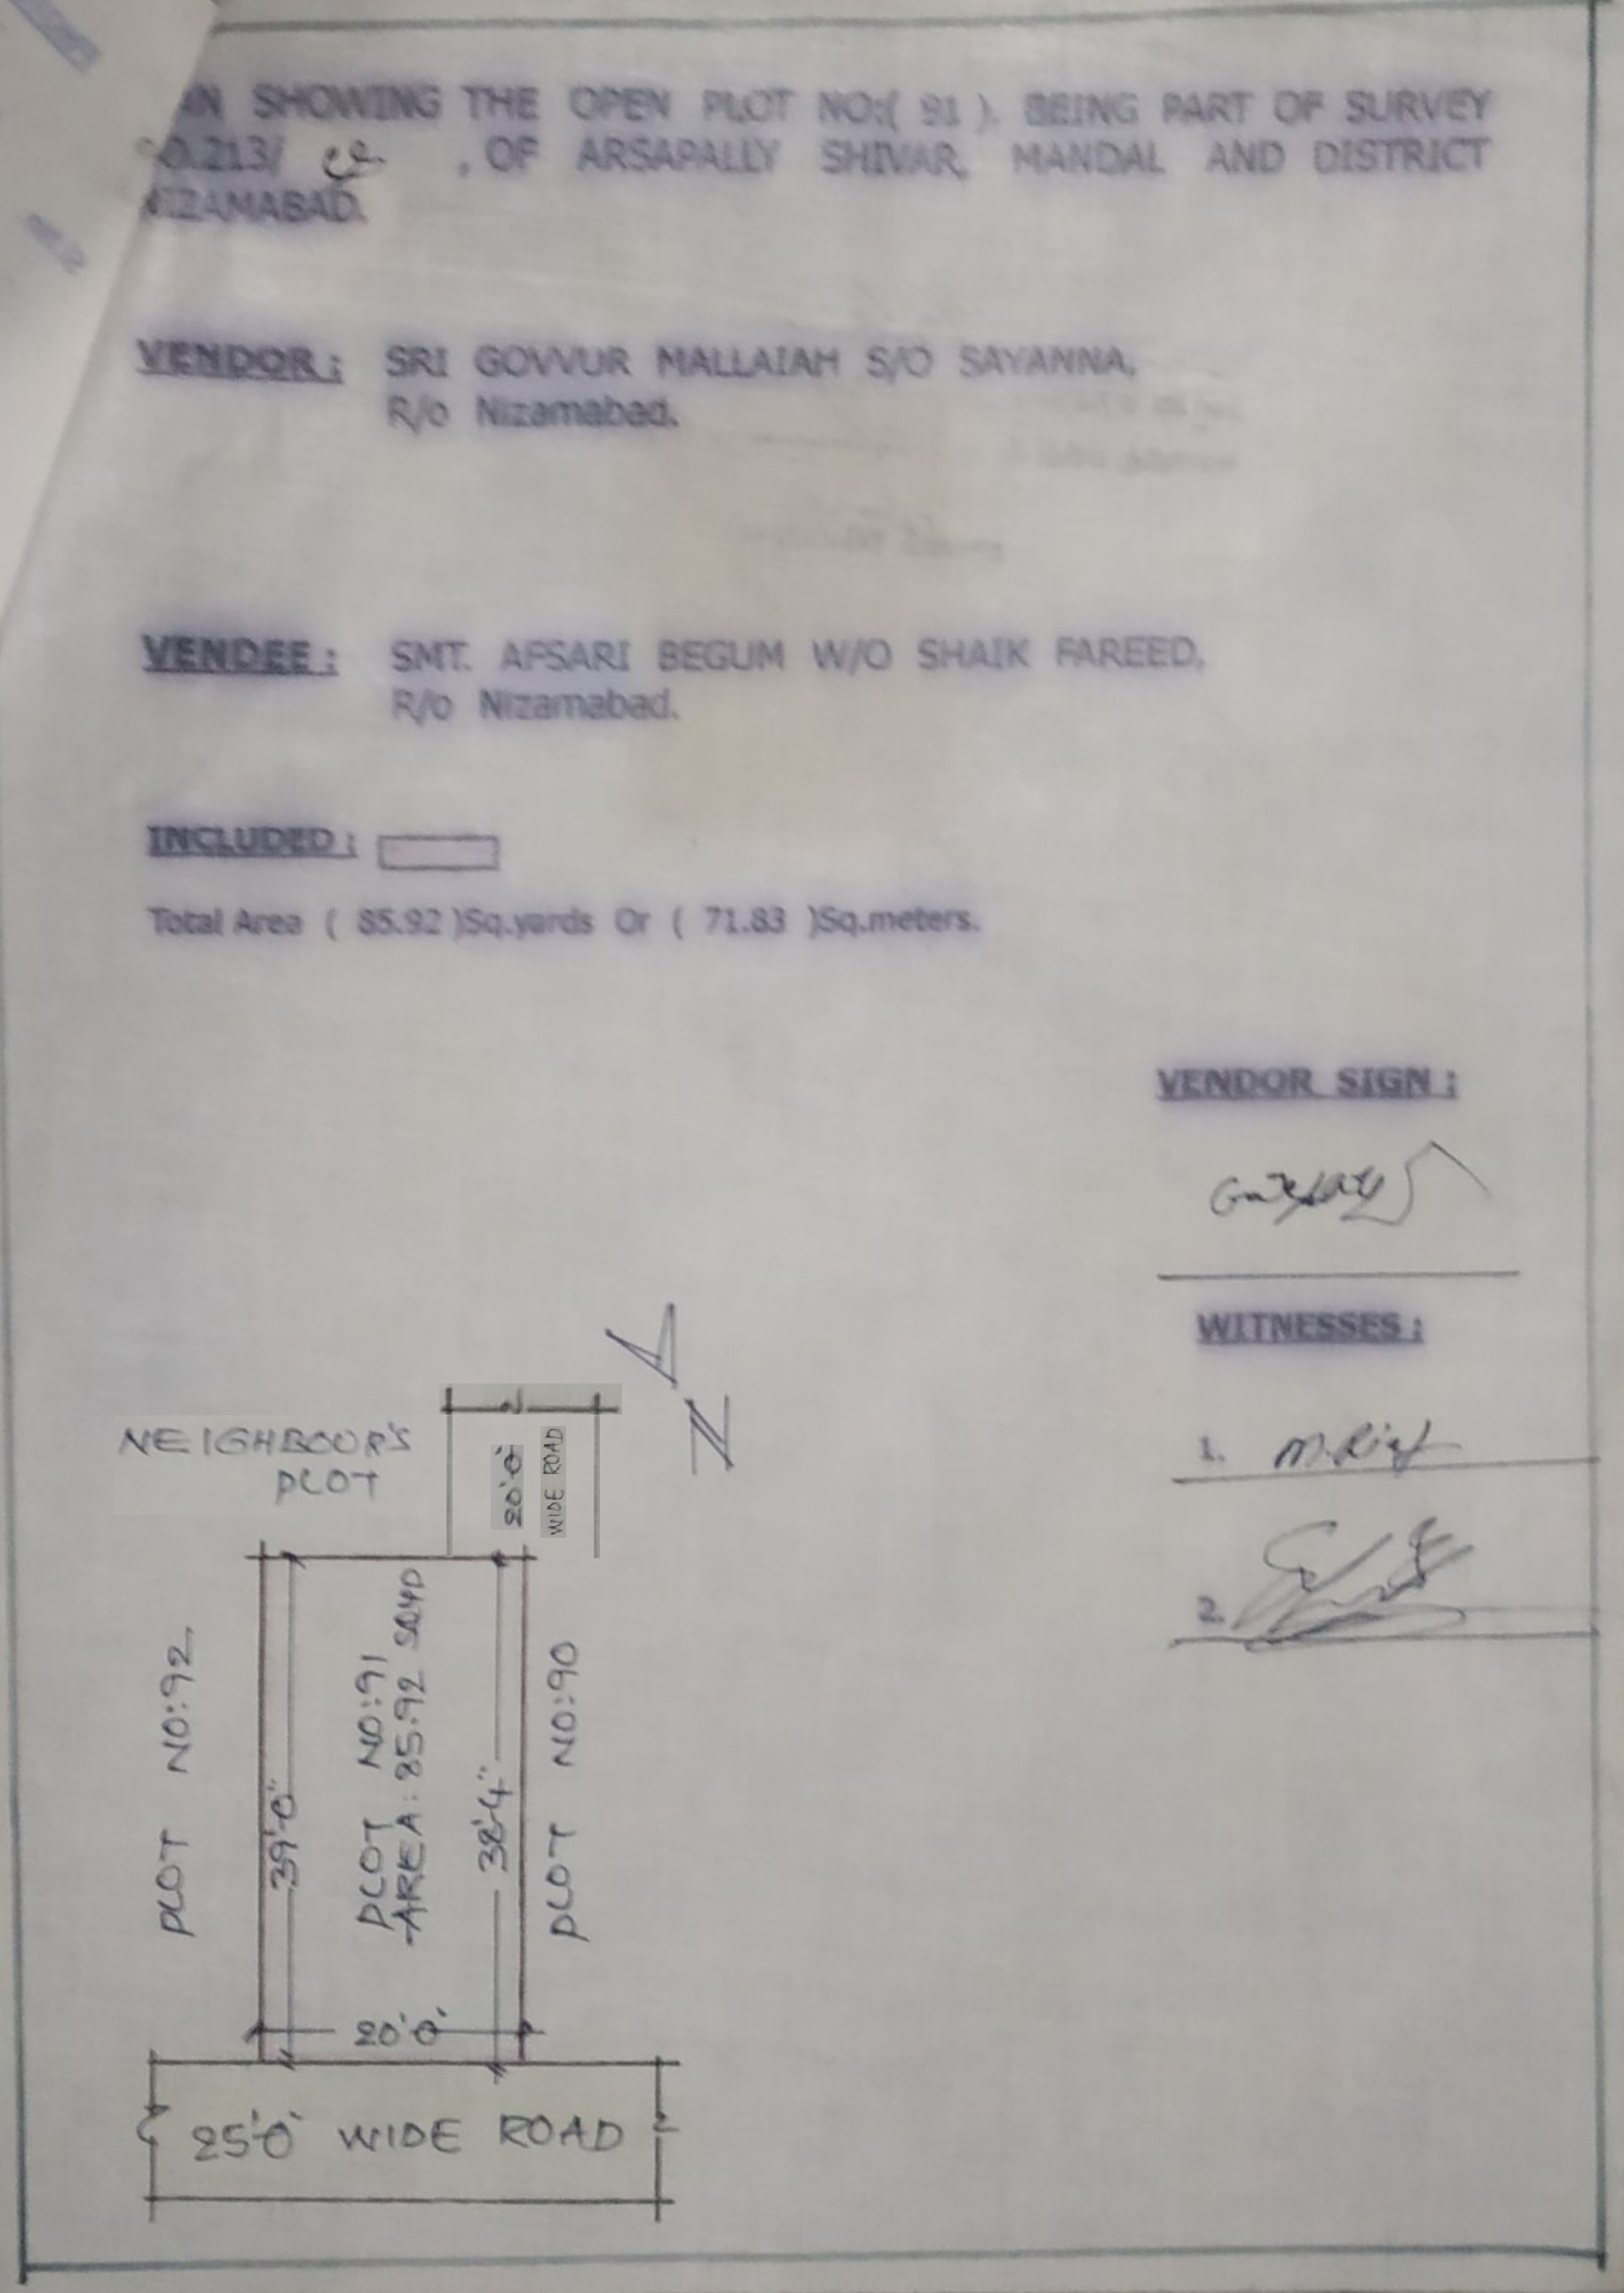 AN SHOWING THE OPEN PLOT NO:( 91 ). BEING PART OF SURVEY
O.213/ , OF ARSAPALLY SHIVAR, MANDAL AND DISTRICT
NIZAMABAD.
VENDOR : SRI GOVVUR MALLAIAH S/O SAYANNA,
R/o Nizamabad.
VENDEE : SMT. AFSARI BEGUM W/O SHAIK FAREED,
R/o Nizamabad.
INCLUDED :
Total Area ( 85.92 )Sq.yards Or ( 71.83 )Sq.meters.
VENDOR SIGN :
WITNESSES :
1.
2.
N
NEIGHBOUR'S
PLOT
20'0'
WIDE ROAD
PLOT NO:92.
39'-0"
PLOT NO:91
AREA: 85.92 SQYD
38'-4"
PLOT NO:90
20'0'
25'0' WIDE ROAD